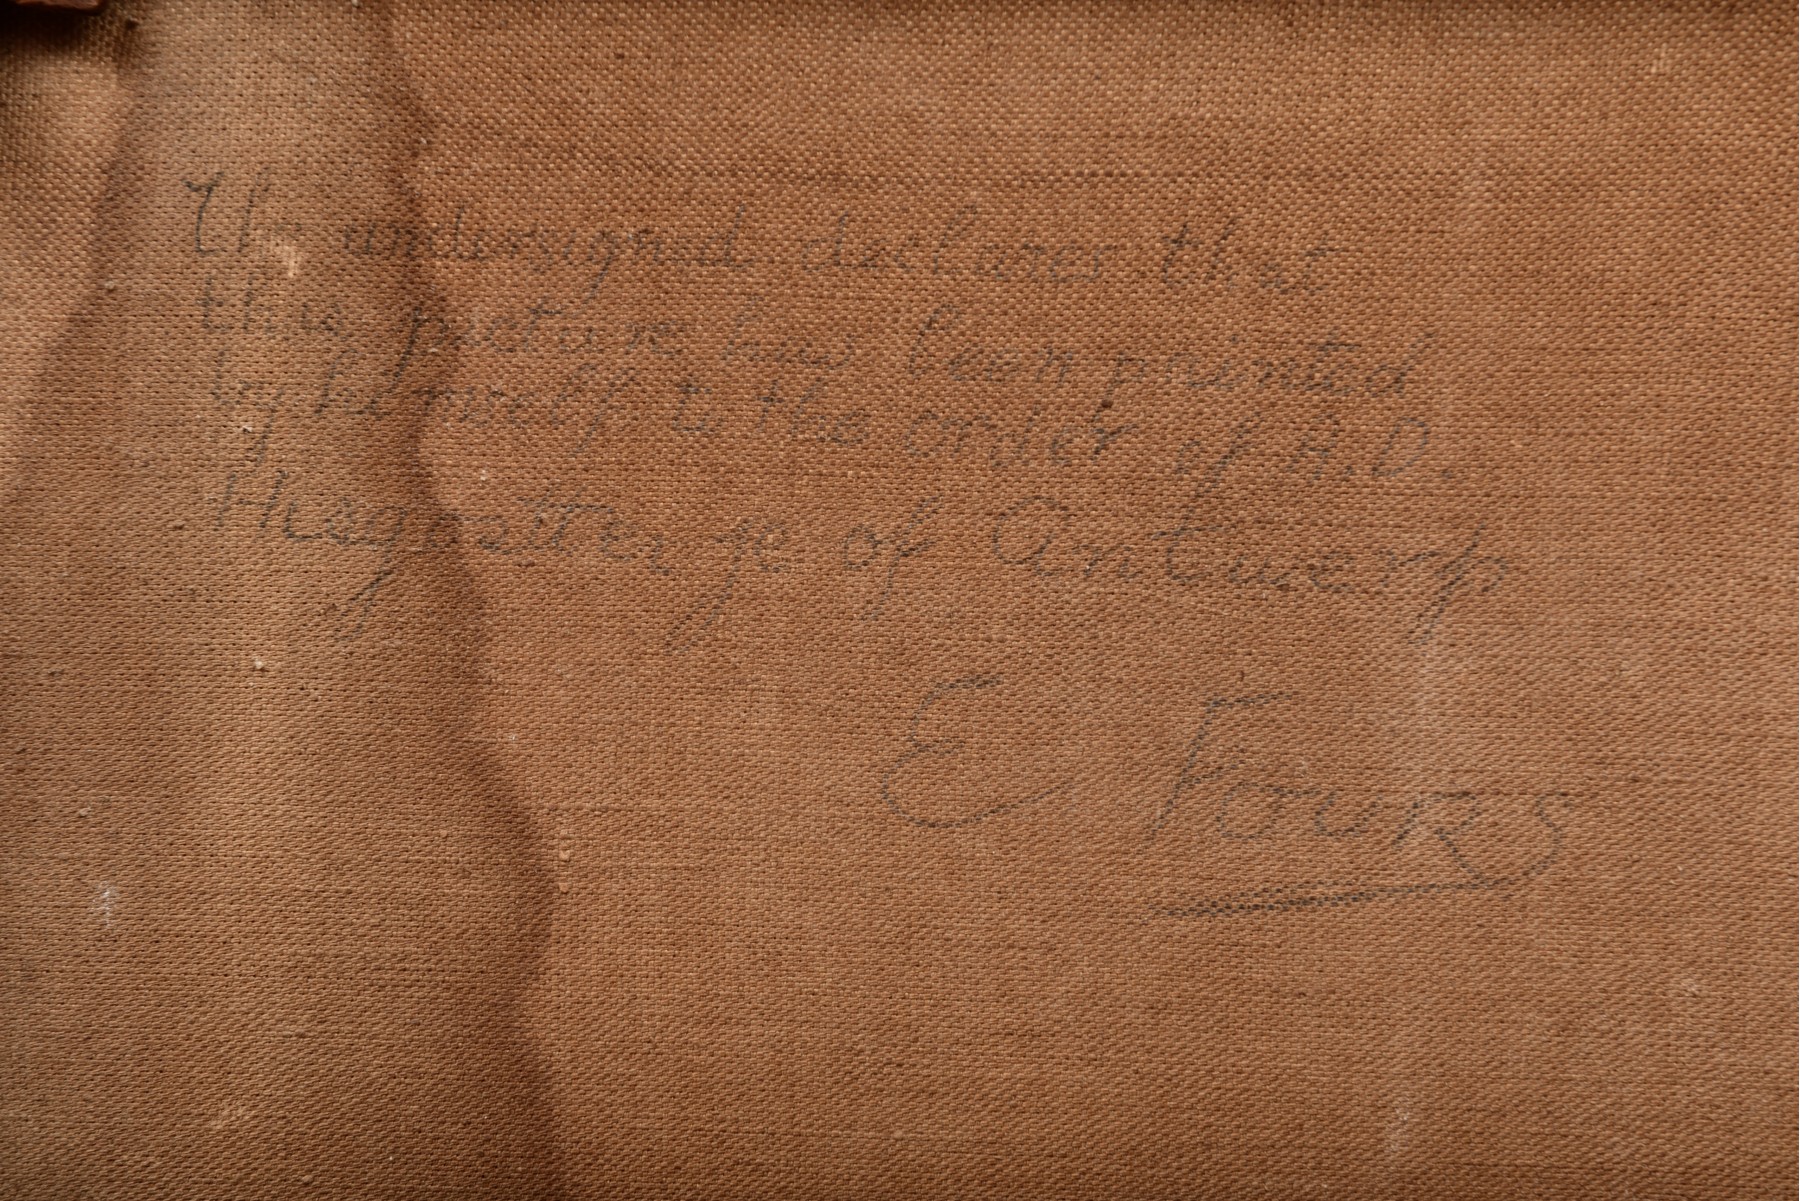 The undersigned declares that
this picture has been painted
by himself to the order of A.D.
of Antwerp
E Fours